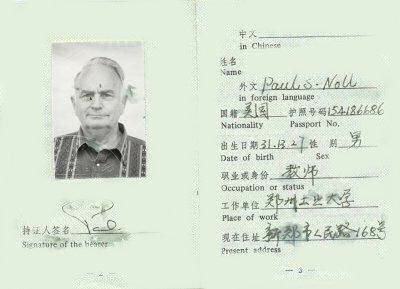 Paul
持证人签名
Signature of the bearer
— 2 —
中文
in Chinese
姓名
Name
外文 Paul S. Noll
in foreign language
国籍 美国 护照号码 154186686
Nationality Passport No.
出生日期 31.13.27 性别 男
Date of birth Sex
职业或身份 教师
Occupation or status
工作单位 郑州工业大学
Place of work
现在住址 新郑市人民路168号
Present address
— 3 —